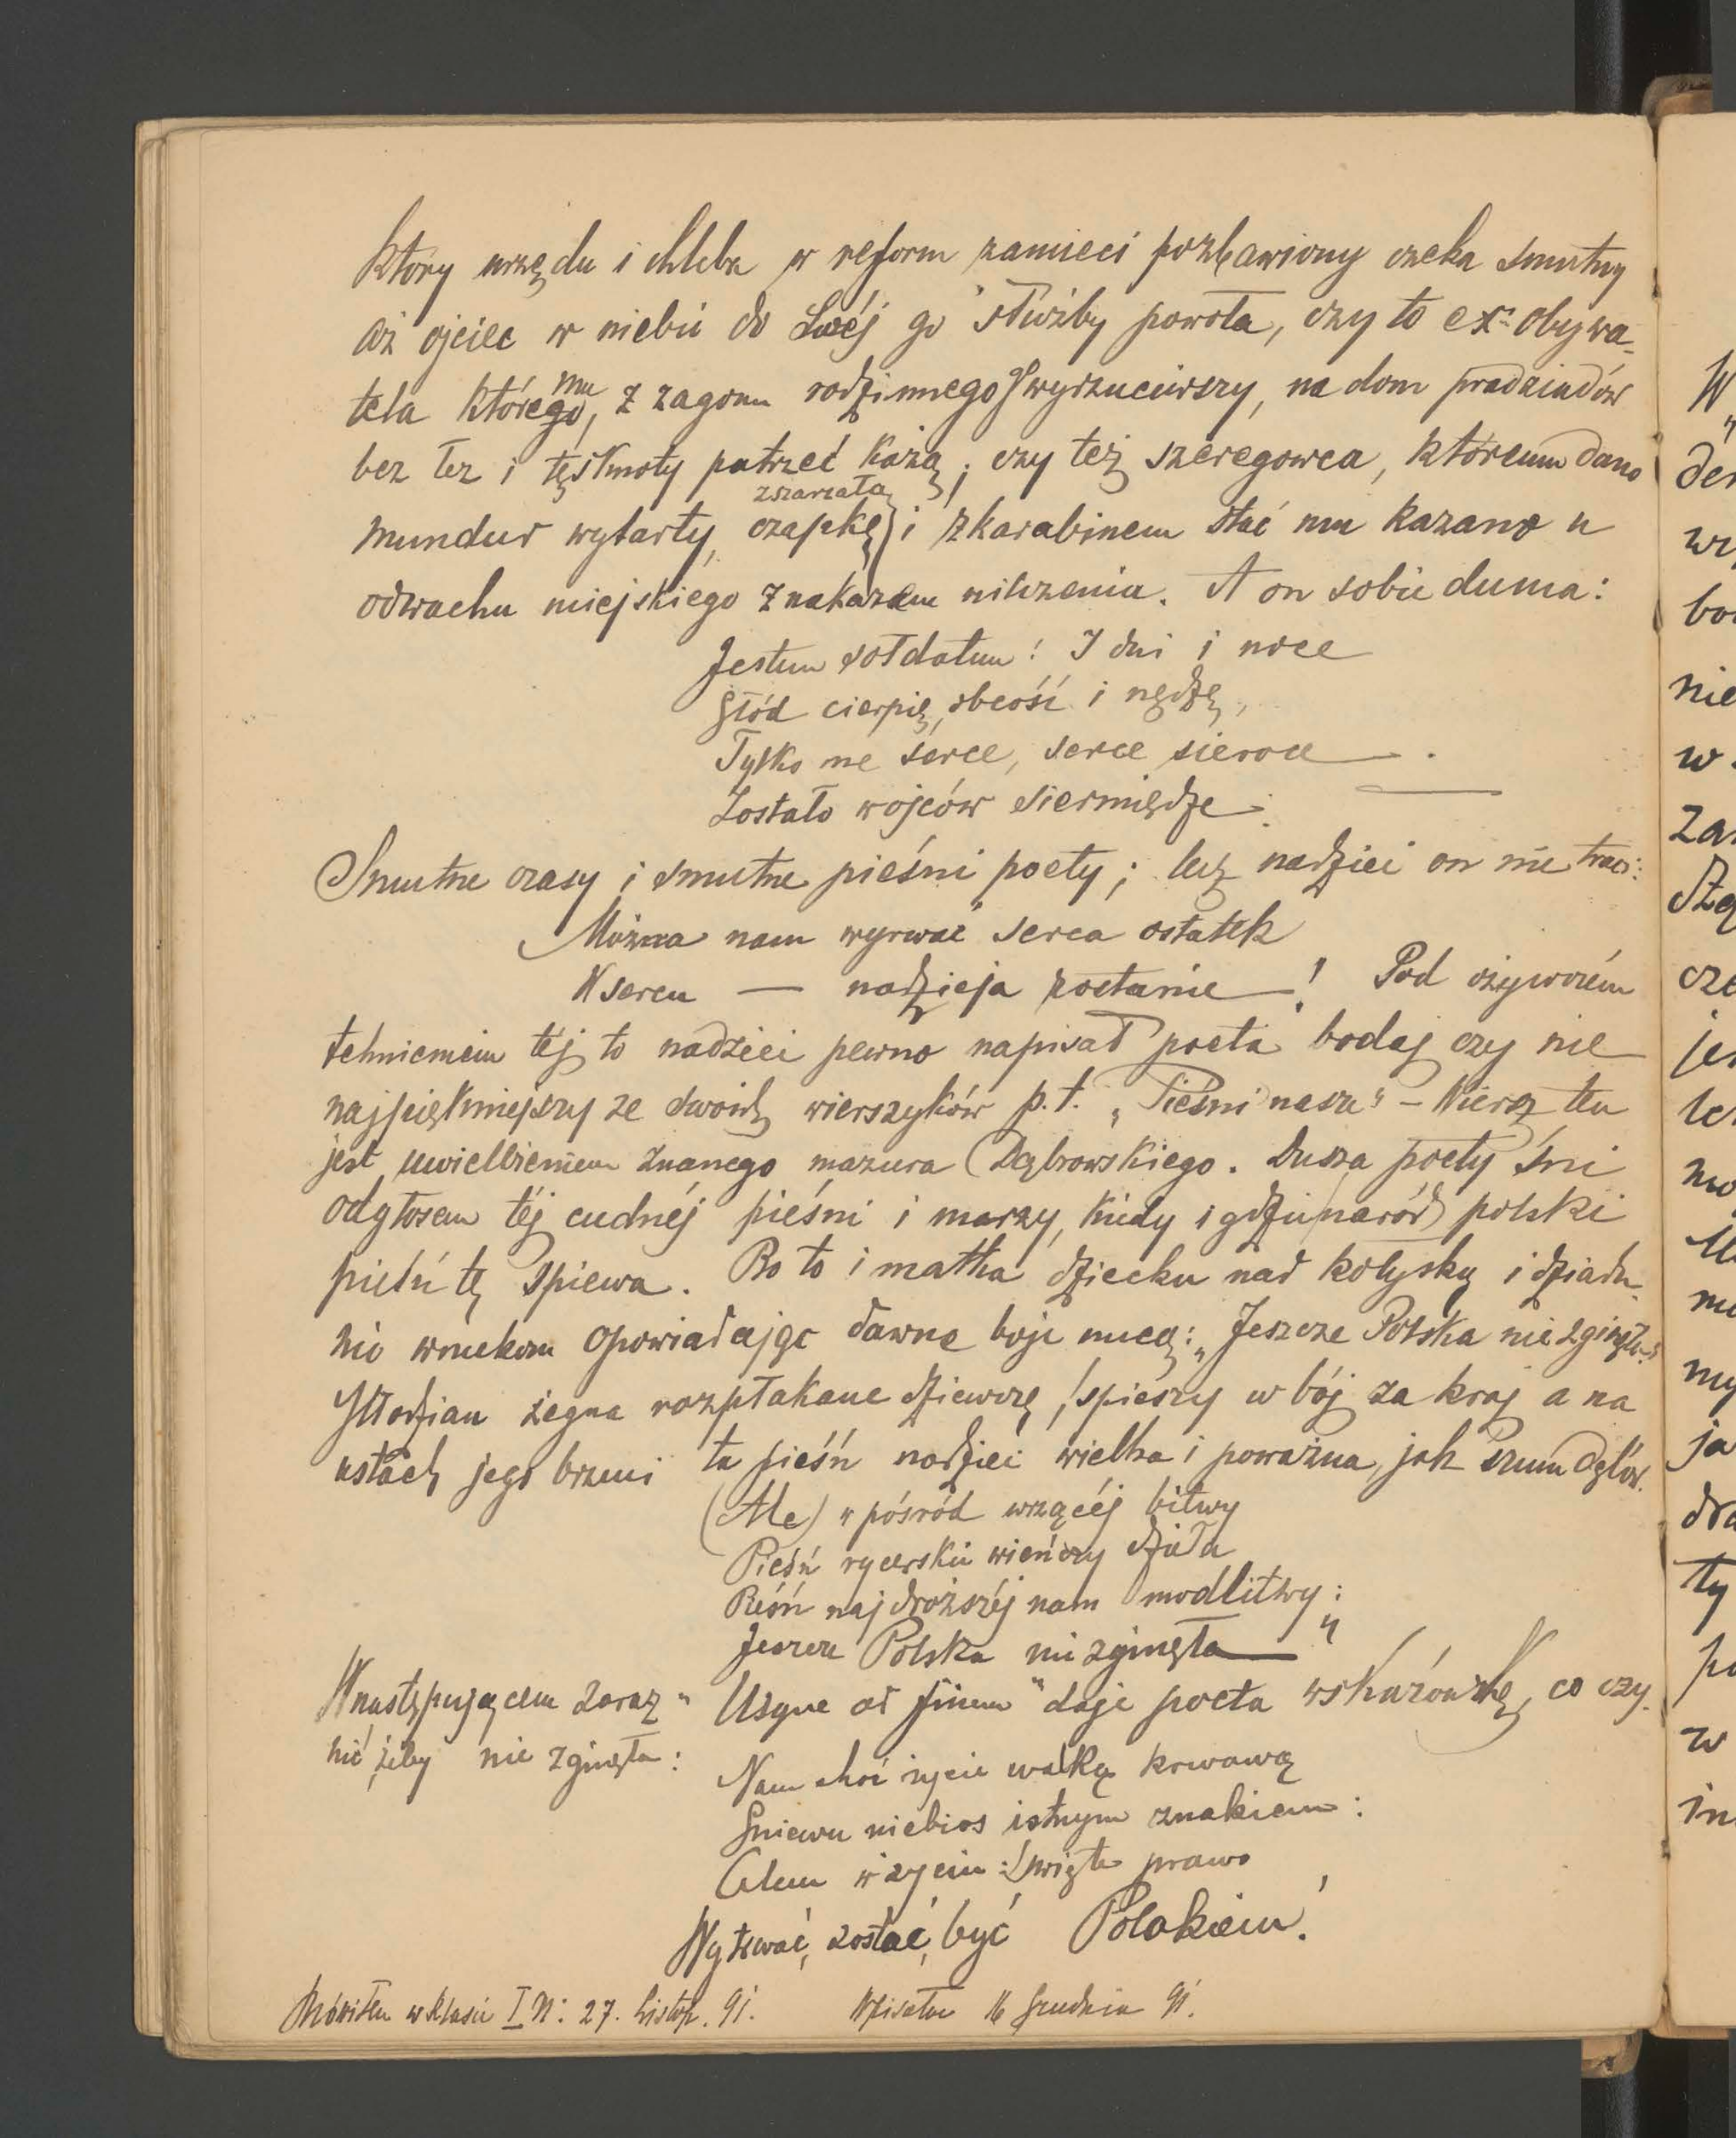 który urzędu i chleba w reform zamieci pozbawiony czeka smutny
aż ojciec w niebie do Swéj go służby powoła, czy to ex-obywa-
tela któregomu, z zagonu rodzinnego wyrzuciwszy, na dom pradziadów
bez łez i tęsknoty patrzeć każą; czy też szeregowca, któremu dano
mundur wytarty, czapkę zszarzałą i z karabinem stać mu kazano u
odwachu miejskiego z nakazem milczenia. A on sobie duma:
Jestem sołdatem! I dni i noce
Głód cierpię, obcość i nędzę,
Tylko me serce, serce sieroce
Zostało w ojców siermiędze.
Smutne czasy i smutne pieśni poety; lecz nadziei on nie traci:
Można nam wyrwać serca ostatek
W sercu — nadzieja zostanie! Pod ożywczém
tchnieniem téj to nadziei pewno napisał poeta bodaj czy nie
najpiękniejszy ze swoich wierszyków p.t. „Pieśni nasze" – Wiersz ten
jest uwielbieniem znanego mazura Dąbrowskiego. Dusza poety śni
odgłosem téj cudnéj pieśni i marzy, kiedy i gdzie naród polski
pieśń tę śpiewa. Bo to i matka dziecku nad kołyską i dziadu-
nio wnukom opowiadając dawne boje nucą: „Jeszcze Polska nie zginęła"
Młodzian żegna rozpłakane dziewczę, spieszy w bój za kraj a na
ustach jego brzmi ta pieśń nadziei wielka i poważna, jak szum dębów.
(Ale) „pośród wrzącéj bitwy
Pieśń rycerskie wieńczy dzieła
Pieśń najdroższéj nam modlitwy:
Jeszcze Polska nie zginęła"
W następującem zaraz „Usque ad finem" daje poeta wskazówkę, co czy-
nić, żeby nie zginęła:
Nam choć życie walką krwawą
Gniewu niebios istnym znakiem:
Celem w życiu: święte prawo
Wytrwać, zostać, być Polakiem!
Mówiłem w klasie I N: 27. Listop. 91. Wpisałem 16 Grudnia 91.
W
der
bo
nie
w
zar
cze
jes
ja
ty
w
in